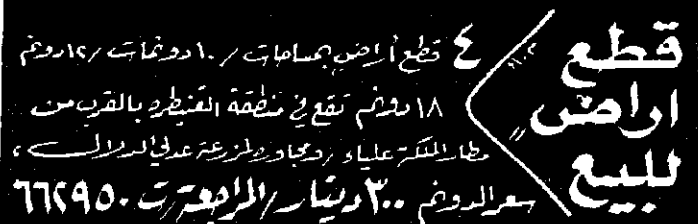 قطع
اراض
للبيع
٤ قطع أراضٍ بمساحات / ١٠ دونمات / ١٢ دونم
١٨ دونم تقع في منطقة القنيطره بالقرب من
مطار الملكة علياء / ومجاور لمزرعة عدلي الدلال ،
سعر الدونم ٢٠٠ دينار / المراجعة ت ٦٦٢٩٥٠